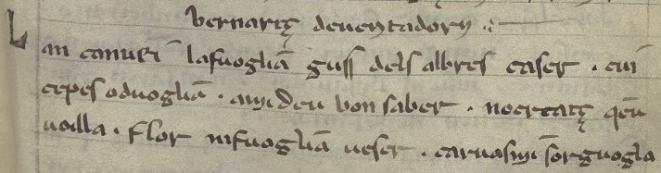 bernartz deventadorn
L an canvei lafuoglia guss dels albres caser . cui
cepes oduoglia . amideu bon saber . nocrcatz qeu
uoilla . flor nifuoglia ueser . caruasmi sorguogla